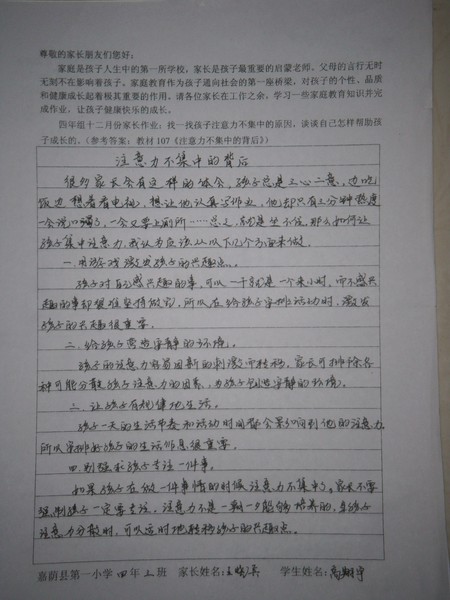 尊敬的家长朋友们您好：
家庭是孩子人生中的第一所学校，家长是孩子最重要的启蒙老师。父母的言行无时
无刻不在影响着孩子。家庭教育作为孩子通向社会的第一座桥梁，对孩子的个性、品质
和健康成长起着极其重要的作用。请各位家长在工作之余，学习一些家庭教育知识并完
成作业，让孩子健康快乐的成长。
四年组十二月份家长作业：找一找孩子注意力不集中的原因，谈谈自己怎样帮助孩
子成长的。（参考答案：教材 107《注意力不集中的背后》）
注意力不集中的背后
很多家长会有这样的体会，孩子总是三心二意，边吃
饭边想着看电视，想让他认真写作业，他却只有三分钟热度
一会说口渴了，一会又要上厕所……总之，就是坐不住。那么如何让
孩子集中注意力，我认为应该从以下几个方面来做。
一.用游戏激发孩子的兴趣点。
孩子对自己感兴趣的事，可以一干就是一个来小时，而不感兴
趣的事却很难坚持做完，所以在给孩子安排活动时，激发
孩子的兴趣很重要。
二.给孩子营造安静的环境。
孩子的注意力容易因新的刺激而转移，家长可排除各
种可能分散孩子注意力的因素，为孩子创造安静的环境。
三.让孩子有规律地生活。
孩子一天的生活节奏和活动时间都会影响到他的注意力
所以安排好孩子的生活作息很重要。
四.别强求孩子专注一件事。
如果孩子在做一件事情的时候注意力不集中了，家长不要
强制孩子一定要专注，注意力不是一朝一夕能够培养的，当孩子
注意力分散时，可以适时地转移孩子的兴趣点。
嘉荫县第一小学 四 年 二 班 家长姓名： 学生姓名：